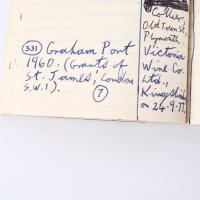 331 Graham Port
1960. (Grants of
St. James', London
S.W.1).
7
Collier,
Old Town St,
Plymouth,
Victoria
Wine Co.
Ltd.,
Kingsbridge
on 24.9.77